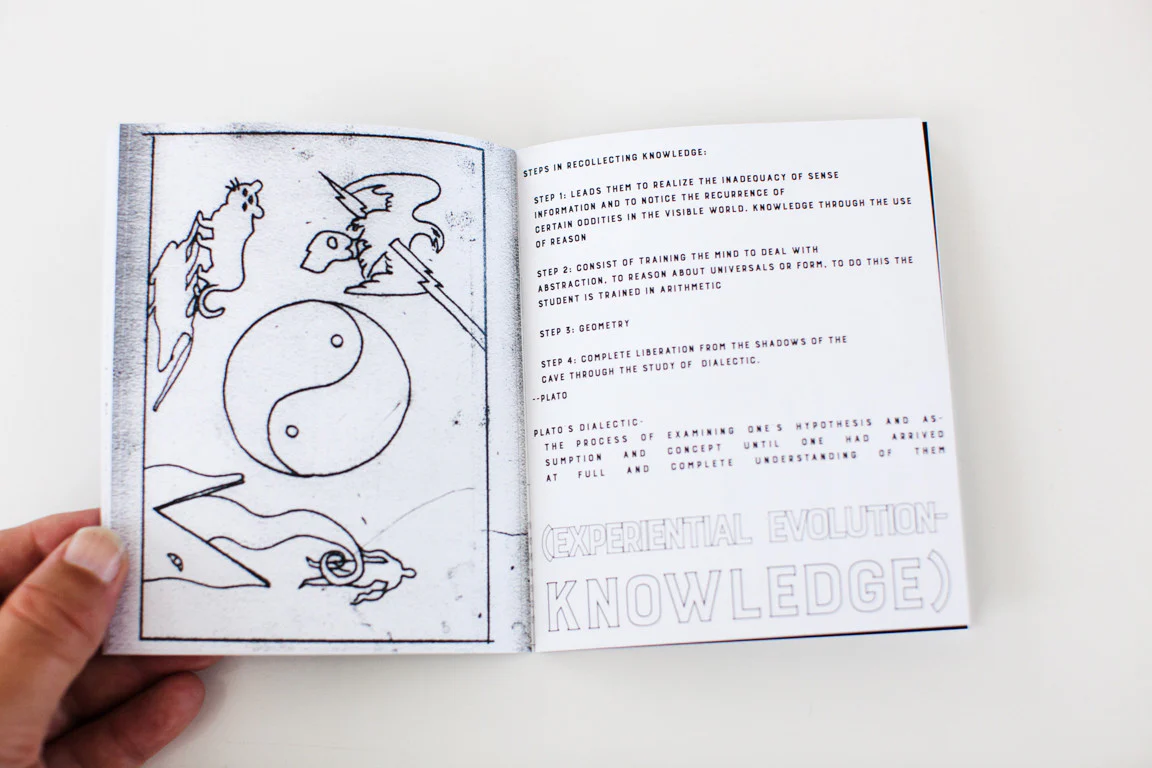 STEPS IN RECOLLECTING KNOWLEDGE:
STEP 1: LEADS THEM TO REALIZE THE INADEQUACY OF SENSE
INFORMATION AND TO NOTICE THE RECURRENCE OF
CERTAIN ODDITIES IN THE VISIBLE WORLD. KNOWLEDGE THROUGH THE USE
OF REASON
STEP 2: CONSIST OF TRAINING THE MIND TO DEAL WITH
ABSTRACTION, TO REASON ABOUT UNIVERSALS OR FORM, TO DO THIS THE
STUDENT IS TRAINED IN ARITHMETIC
STEP 3: GEOMETRY
STEP 4: COMPLETE LIBERATION FROM THE SHADOWS OF THE
CAVE THROUGH THE STUDY OF DIALECTIC.
--PLATO
PLATO'S DIALECTIC-
THE PROCESS OF EXAMINING ONE'S HYPOTHESIS AND AS-
SUMPTION AND CONCEPT UNTIL ONE HAD ARRIVED
AT FULL AND COMPLETE UNDERSTANDING OF THEM
(EXPERIENTIAL EVOLUTION-
KNOWLEDGE)